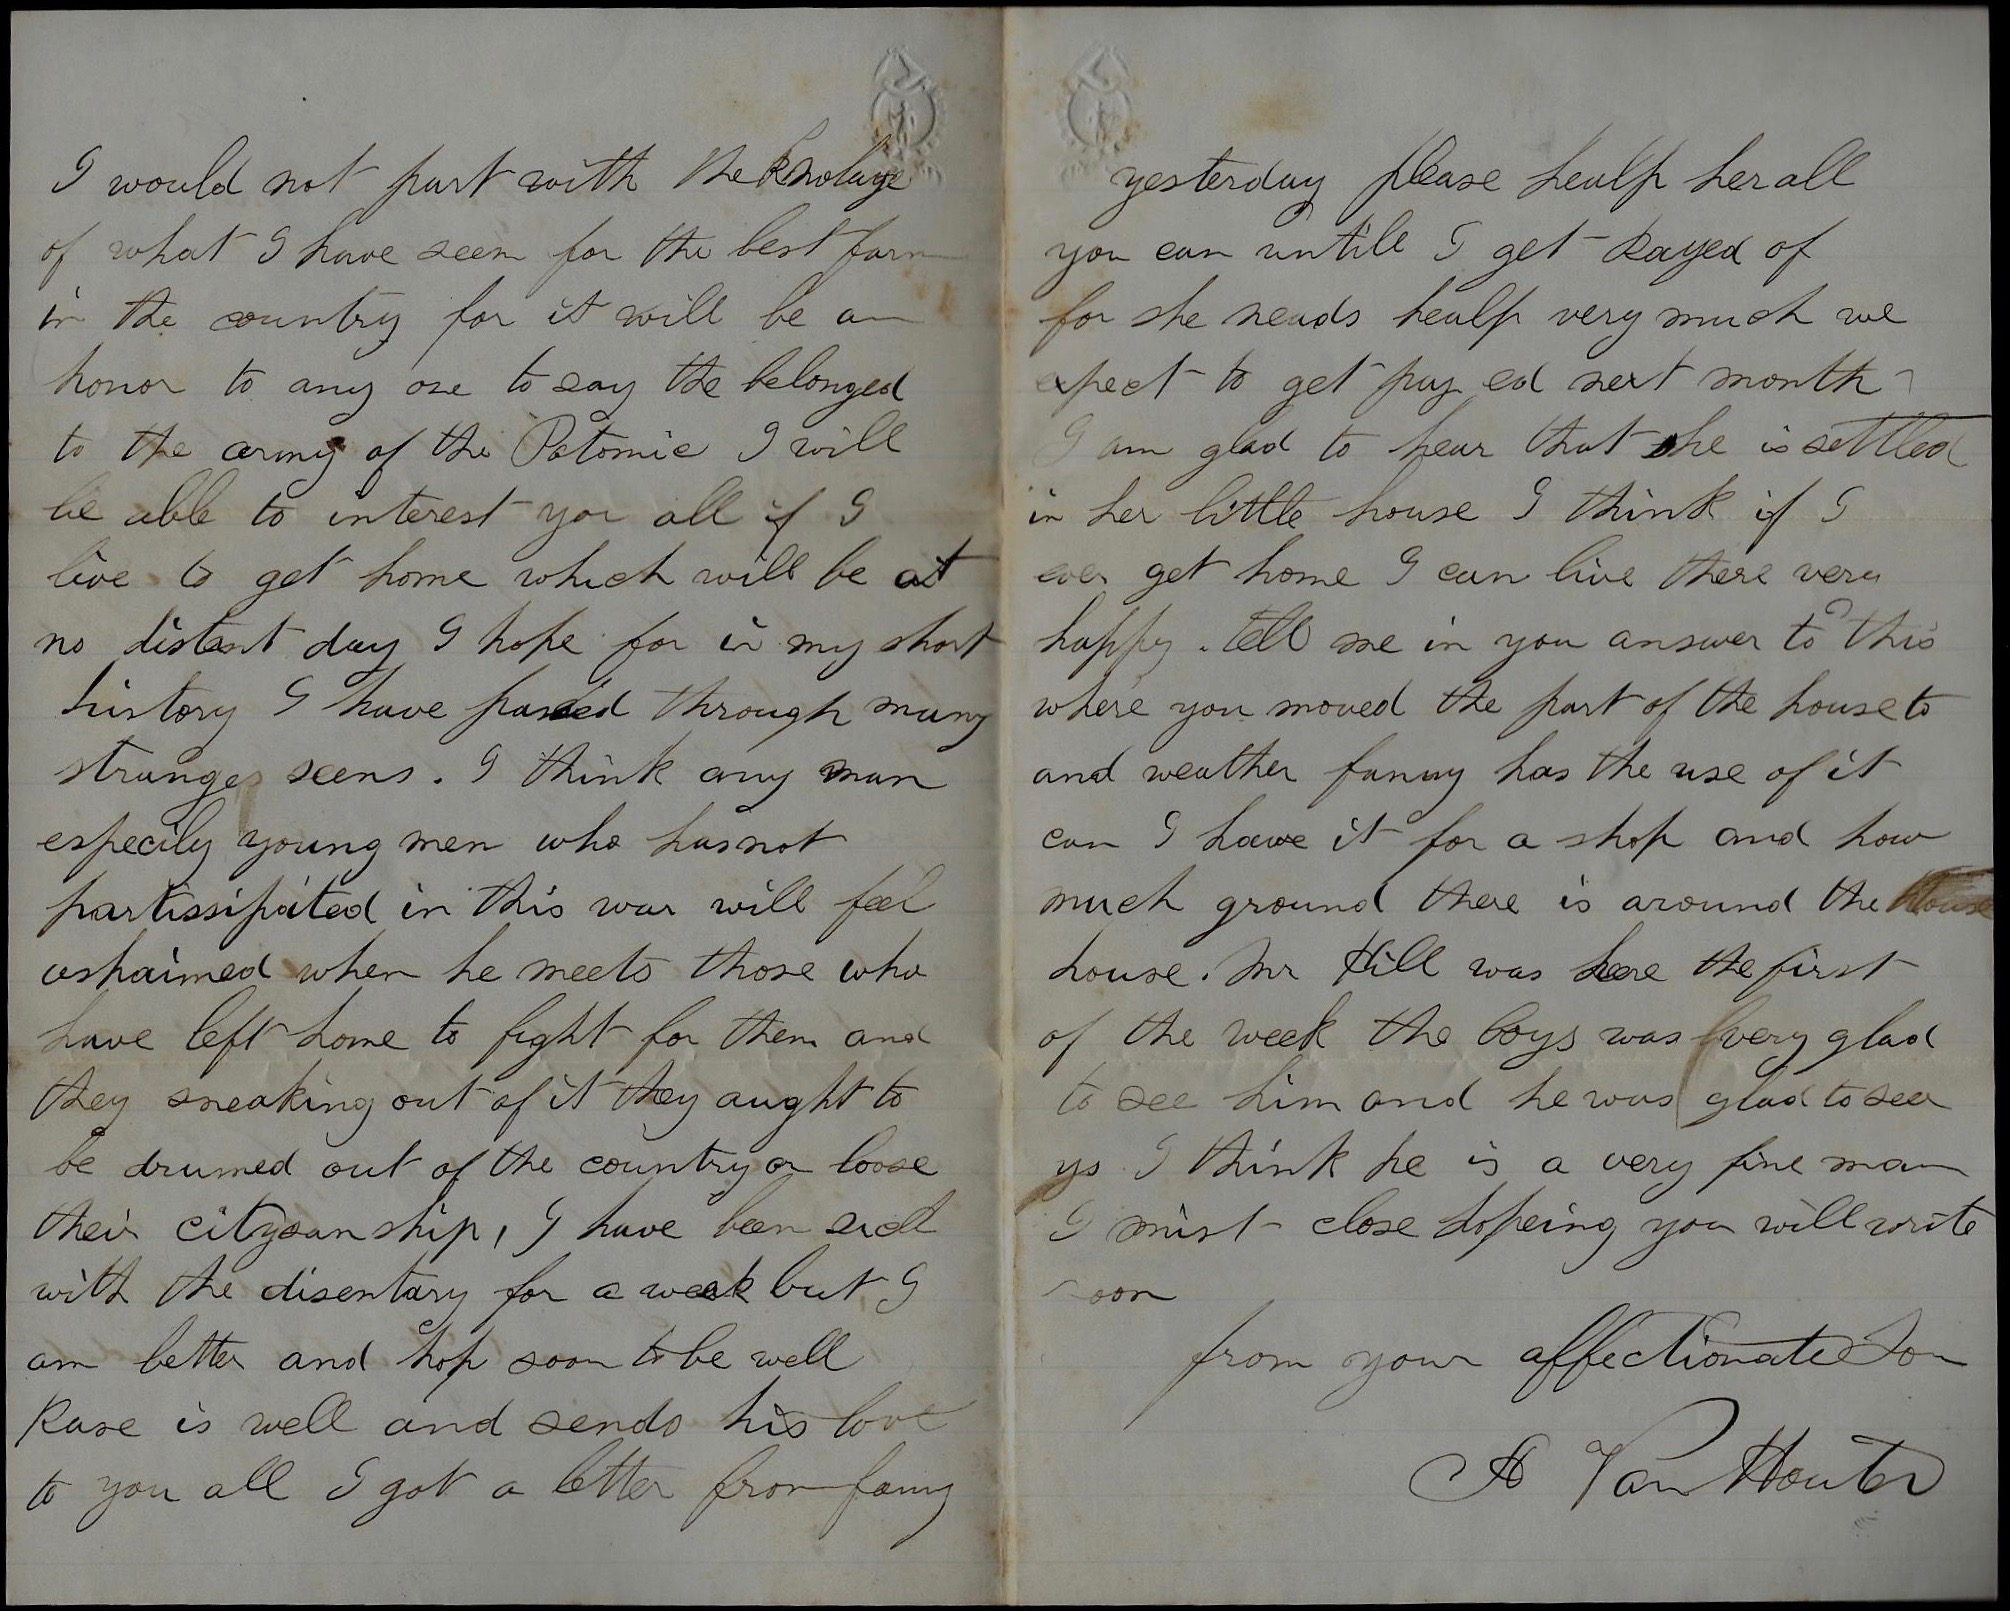 I would not part with the knolage
of what I have seen for the best farm
in the country for it will be an
honor to any one to say the belonged
to the army of the Potomic I will
be able to interest you all if I
live to get home which will be at
no distant day I hope for in my short
history I have passed through many
strange seens. I think any man
especily young men who has not
partissipated in this war will feel
ashaimed when he meets those who
have left home to fight for them and
they sneaking out of it they aught to
be drumed out of the country or loose
their citysanship, I have been sick
with the disentary for a week but I
am better and hop soon to be well
Rase is well and sends his love
to you all I got a letter from fanny
yesterday please healp her all
you can untill I get payed of
for she neads healp very much we
expect to get pay ed next month
I am glad to hear that she is settled
in her little house I think if I
ever get home I can live there very
happy. tell me in you answer to this
where you moved the part of the house to
and weather fanny has the use of it
can I have it for a shop and how
much ground there is around the house
house. Mr Hill was here the first
of the week the boys was very glad
to see him and he was glad to see
us I think he is a very fine man
I must close hopeing you will write
soon
from your affectionate Son
A Van Houten